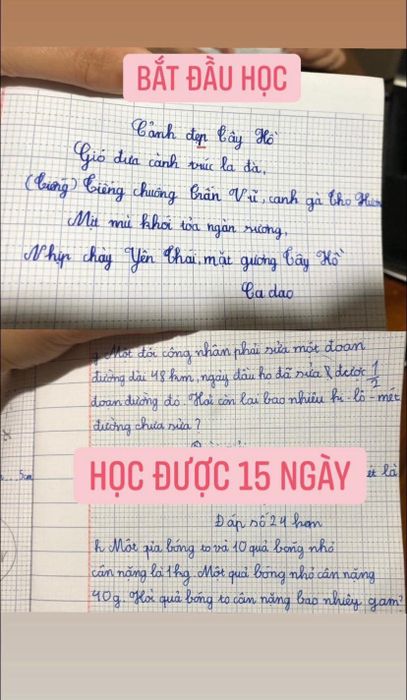 BẮT ĐẦU HỌC
Cảnh đẹp Tây Hồ
Gió đưa cành trúc la đà,
(Tương) Tiếng chuông Trấn Vũ, canh gà Thọ Xương
Mịt mù khói tỏa ngàn sương,
Nhịp chày Yên Thái, mặt gương Tây Hồ
Ca dao
g Một đôi công nhân phải sửa một đoan
đường dài 48 km, ngày đầu ho đã sửa được 1/2
đoan đường đó. Hỏi còn lai bao nhiêu ki-lô-mét
đường chưa sửa?
HỌC ĐƯỢC 15 NGÀY
ét là
5cm
Đáp số 24 km
h Môt qủa bóng to và 10 quả bóng nhỏ
cân nặng là 1kg. Môt quả bóng nhỏ cân năng
40g. Hỏi quả bóng to cân năng bao nhiêu gam?